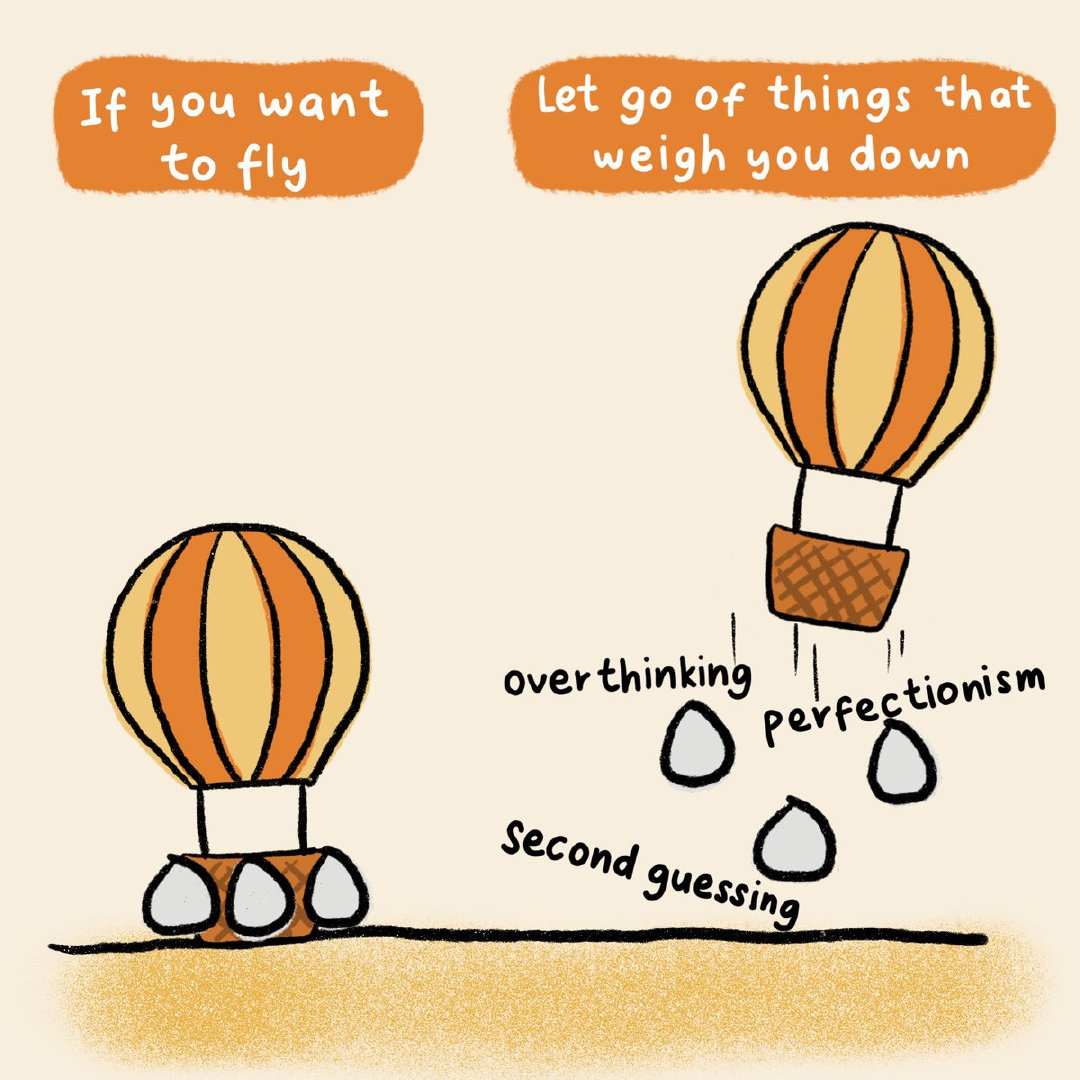 If you want
to fly
Let go of things that
weigh you down
overthinking
perfectionism
second guessing